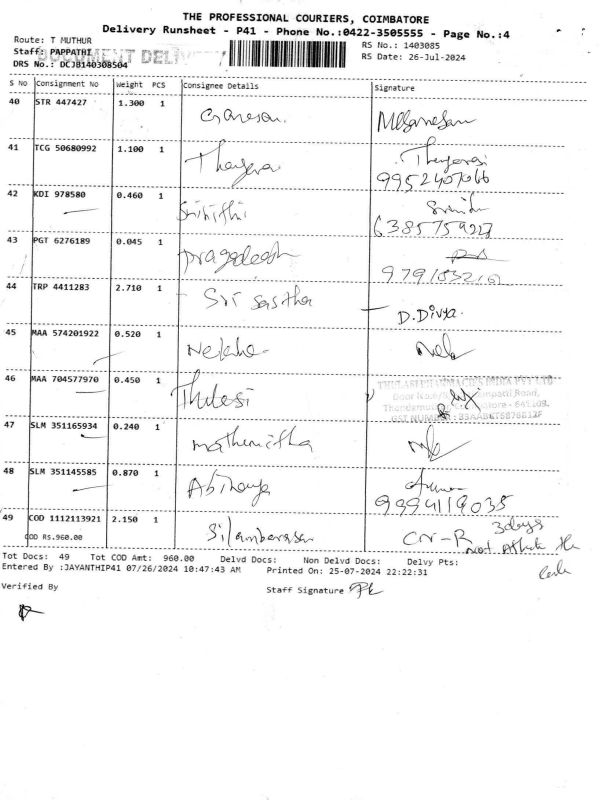 THE PROFESSIONAL COURIERS, COIMBATORE
Delivery Runsheet - P41 - Phone No.:0422-3505555 - Page No.:4
Route: T MUTHUR
RS No.: 1403085
Staff: PAPPATHI
DOCUMENT DELIVERY
RS Date: 26-Jul-2024
DRS No.: DCJB140308504
S No Consignment No Weight PCS Consignee Details Signature
40 STR 447427 1.300 1 Ganesan
41 TCG 50680992 1.100 1
9952407066
42 KDI 978580 0.460 1 Srinithi
6385759227
43 PGT 6276189 0.045 1 pragadeesh
44 TRP 4411283 2.710 1 Sri sastha D.Divya.
45 MAA 574201922 0.520 1
46 MAA 704577970 0.450 1 Thulasi
THULASI PHARMACIES INDIA PVT LTD
47 SLM 351165934 0.240 1
48 SLM 351145585 0.870 1
9994119035
49 COD 1112113921 2.150 1 Silambarasan CN-R 3days
COD RS.960.00
Tot Docs: 49 Tot COD Amt: 960.00 Delvd Docs: Non Delvd Docs: Delvy Pts:
Entered By :JAYANTHIP41 07/26/2024 10:47:43 AM Printed On: 25-07-2024 22:22:31
Verified By
Staff Signature